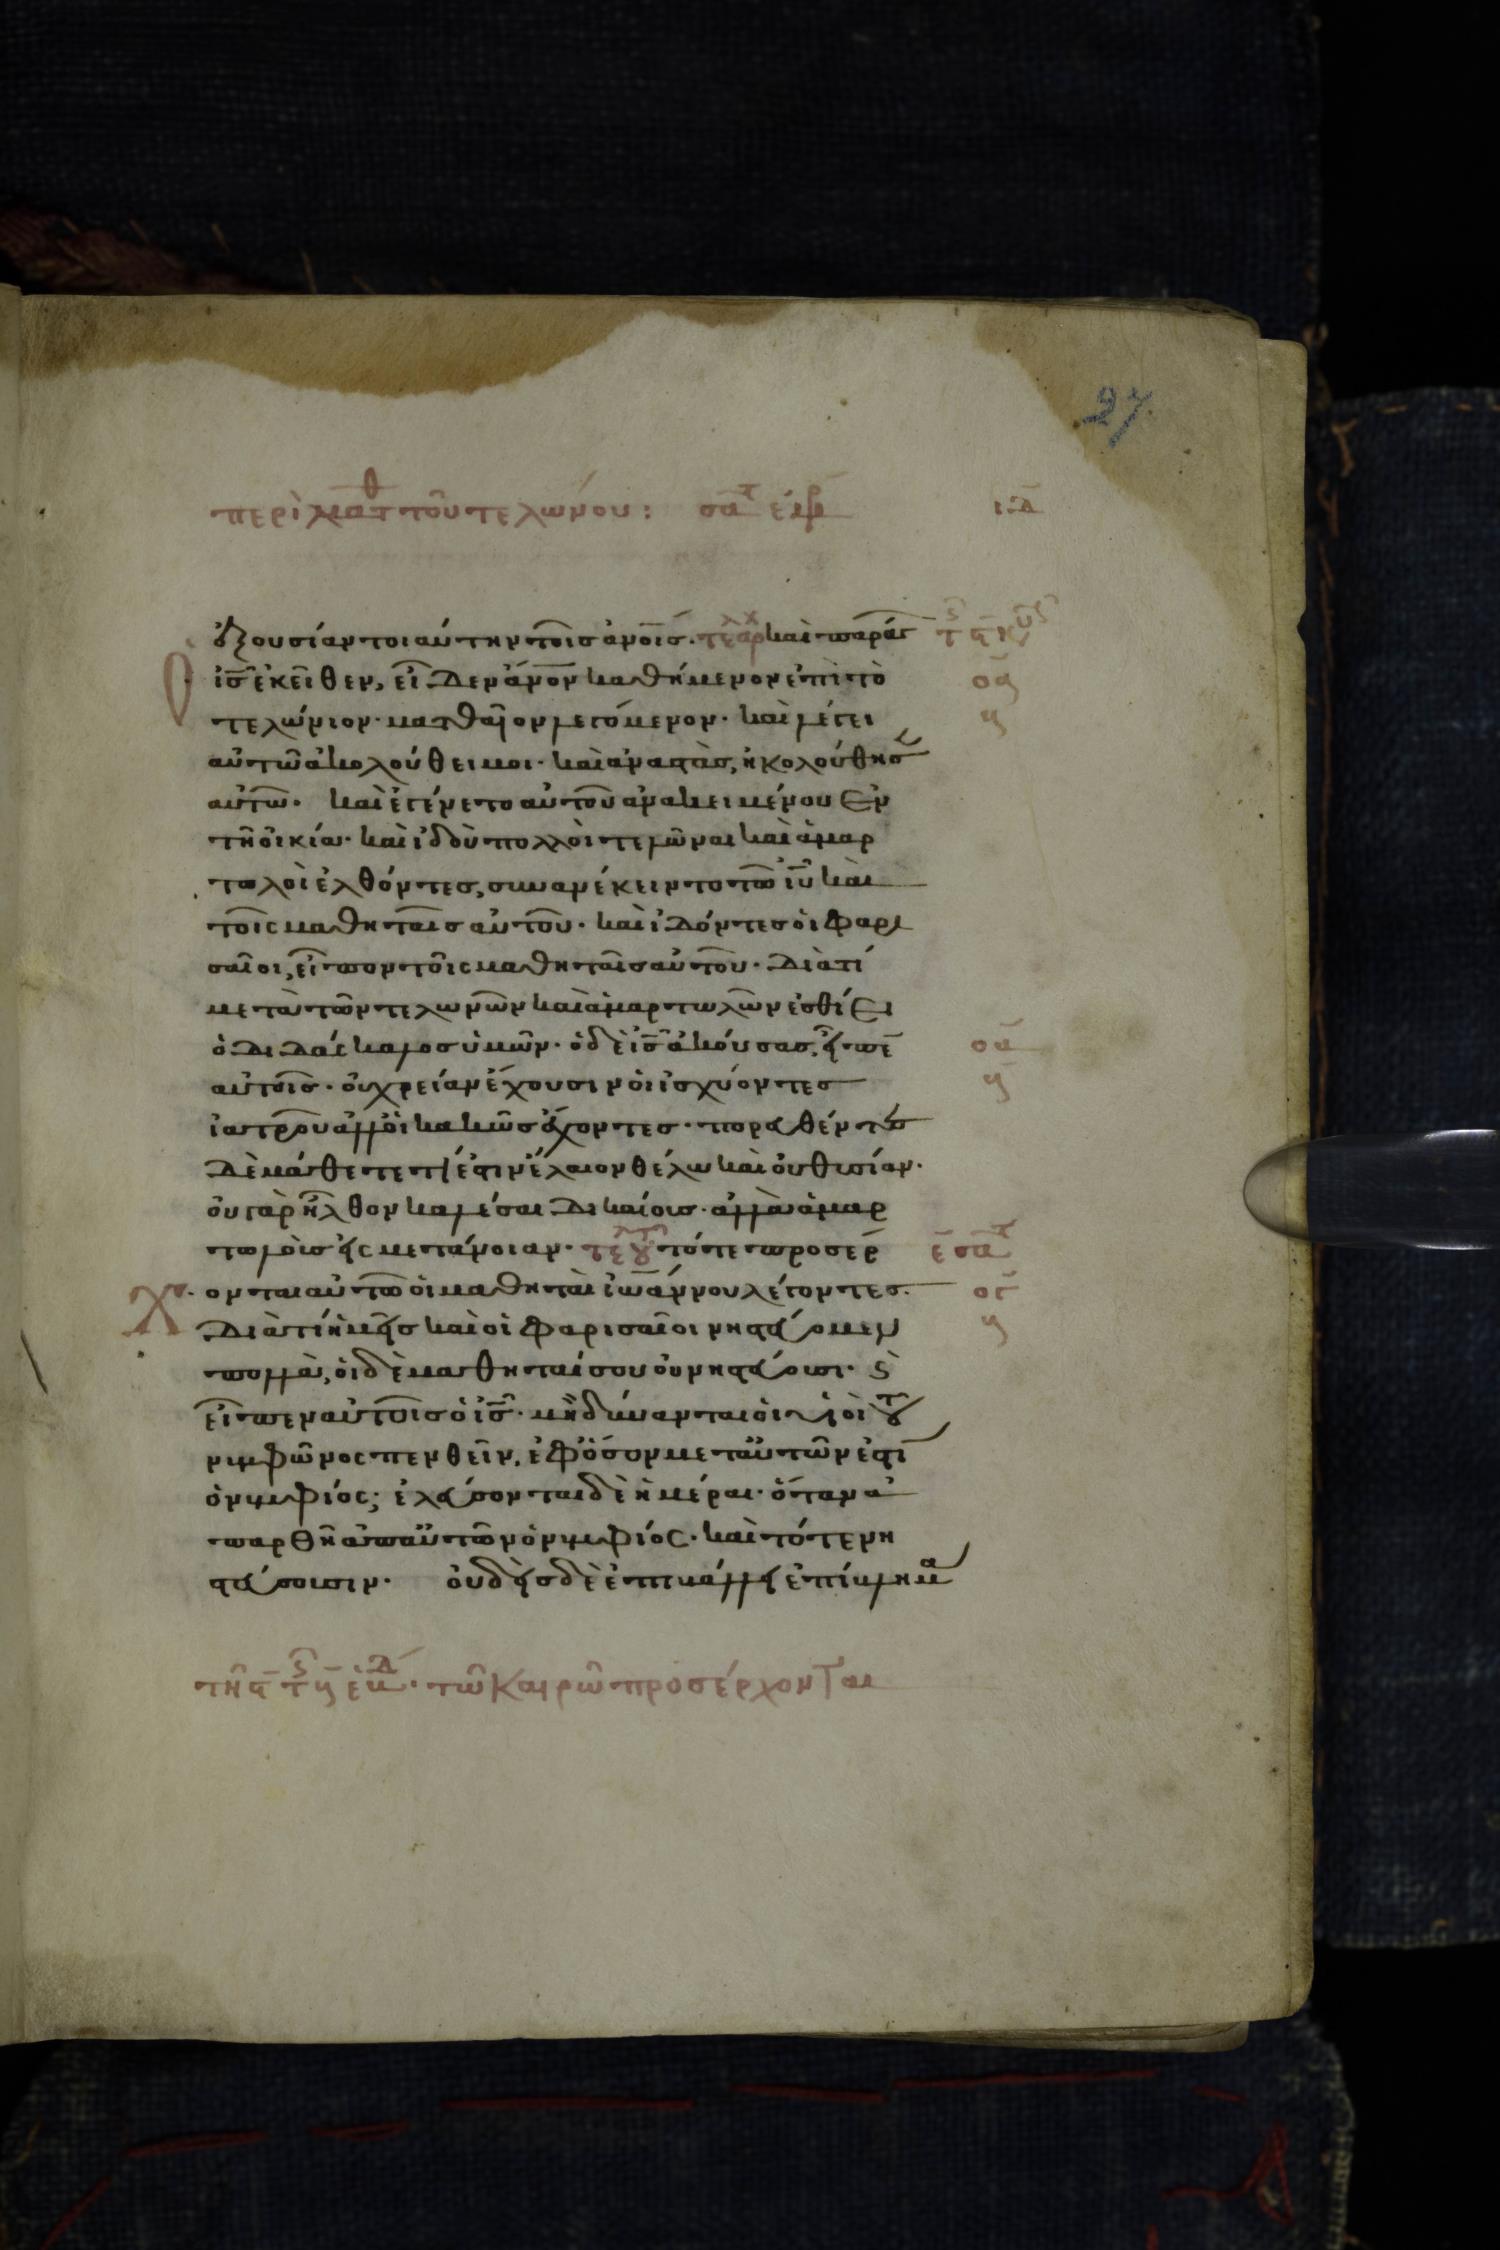 27
περὶ ματθ τοῦ τελώνου :
ιδ
ἐξουσίαν τοιαύτην τοῖς ἀνοῖς · καὶ παράγ
ὁ ις ἐκεῖθεν, εἶδεν ἄνον καθήμενον ἐπὶ τὸ
τελώνιον · ματθαῖον λεγόμενον · καὶ λέγει
αὐτῶ ἀκολούθει μοι · καὶ ἀναστὰς, ἠκολούθησεν
αὐτῶ · καὶ ἐγένετο αὐτοῦ ἀνακειμένου ἐν
τῆ οἰκία · καὶ ἰδοὺ πολλοὶ τελῶναι καὶ ἁμαρ
τωλοὶ ἐλθόντες, συνανέκειντο τῶ ιυ καὶ
τοῖς μαθηταῖς αὐτοῦ · καὶ ἰδόντες οἱ φαρι
σαῖοι, εἶπον τοῖς μαθηταῖς αὐτοῦ · διατί
μετὰ τῶν τελωνῶν καὶ ἁμαρτωλῶν ἐσθίει
ὁ διδάσκαλος ὑμῶν · ὁ δὲ ις ἀκούσας, εἶπεν
αὐτοῖς · οὐ χρείαν ἔχουσιν οἱ ἰσχύοντες
ἰατροῦ ἀλλ οἱ κακῶς ἔχοντες · πορευθέντες
δὲ μάθετε τί ἐστιν ἔλαιον θέλω καὶ οὐ θυσίαν ·
οὐ γὰρ ἦλθον καλέσαι δικαίους · ἀλλὰ ἁμαρ
τωλοὺς εἰς μετάνοιαν · τότε προσέρ
χονται αὐτῶ οἱ μαθηταὶ ἰωάννου λέγοντες ·
διατί ἡμεῖς καὶ οἱ φαρισαῖοι νηστεύομεν
πολλὰ, οἱ δὲ μαθηταί σου οὐ νηστεύουσι · ϛ
εἶπεν αὐτοῖς ὁ ις · μὴ δύνανται οἱ υἱοὶ τοῦ
νυμφῶνος πενθεῖν, ἐφ ὅσον μετ αὐτῶν ἐστιν
ὁ νυμφίος ; ἐλεύσονται δὲ ἡμέραι · ὅταν ἀ
παρθῆ ἀπ αὐτῶν ὁ νυμφίος · καὶ τότε νη
στεύσουσιν · οὐδεὶς δὲ ἐπιβάλλει ἐπίβλημα
τῶ καιρῶ προσέρχονται